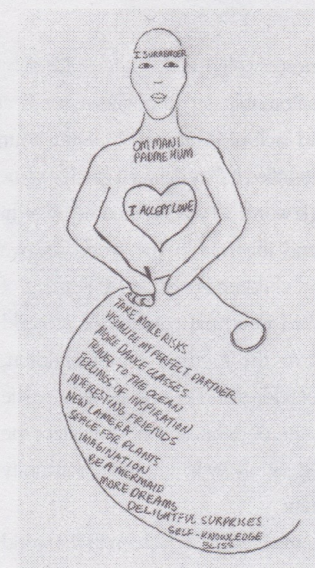 I SURRENDER
OM MANI
PADME HUM
I ACCEPT LOVE
TAKE MORE RISKS
VISUALIZE MY PERFECT PARTNER
MORE DANCE CLASSES
TRAVEL TO THE OCEAN
FEELINGS OF INSPIRATION
INTERESTING FRIENDS
NEW CAMERA
SPACE FOR PLANTS
IMAGINATION
BE A MERMAID
MORE DREAMS
DELIGHTFUL SURPRISES
SELF-KNOWLEDGE
BLISS